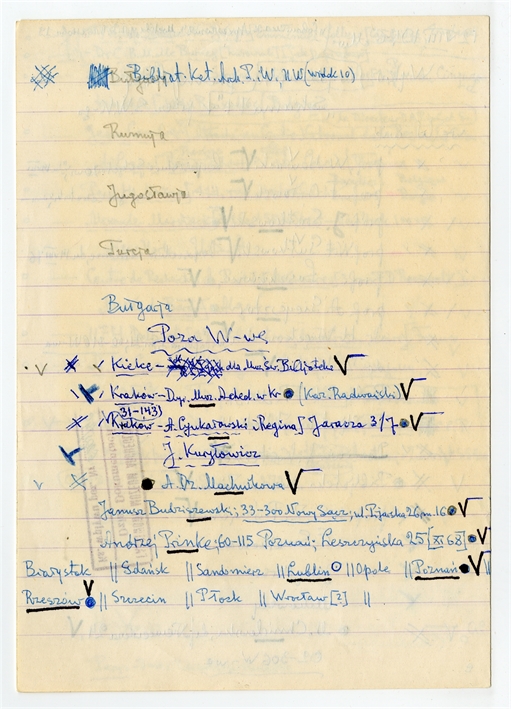 Bibliot. Kat. Arch. P. W., N W (wróćić 10)
Rumunja
Jugosławja
Turcja
Bułgarja
Poza W-wą
Kielce - dla
Kraków - Dyr. Muz. Arched. w Kr (Kaz. Radwański)
31-143
Kraków - A. [Regina] Jaracza 3/7
J. Kuryłowicz
A. Dr. Machnikowa
Janusz Budziszewski; 33-300 Nowy Sącz; ul. Pijarska 26 m. 16
Andrzej Prinke; 60-115 Poznań; Leszczyńska 25 [XI 68]
Białystok || Gdańsk || Sandomierz || Lublin || Opole || Poznań ||
Rzeszów || Szczecin || Płock || Wrocław [2] ||